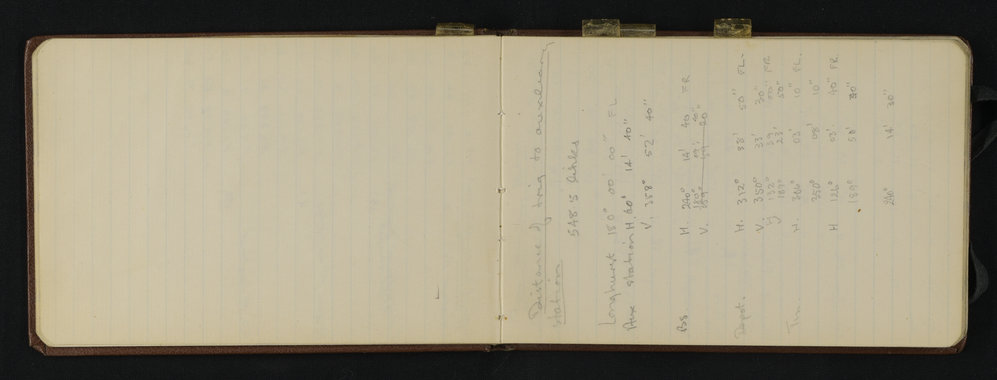 Distance of trig to auxiliary
station
548 5 links
Longhurst 180° 00' 00" FL
Aux station H. 60° 14' 40"
V. 358° 52' 40"
BS H. 240° 14' 40 FR
V.
Depot. H. 312° 33' 50" FL.
V. 350° 33' 30"
132° 39 FR
189° 23' 50"
H. 306° 03' 10" FL.
350° 08' 10"
H 126° 03' 40" FR
189° 50' 30"
240° 14' 30"